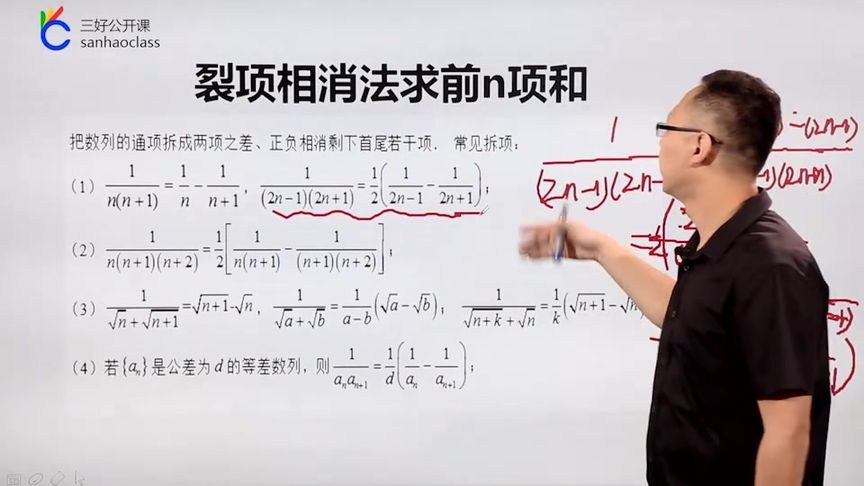 三好公开课
sanhaoclass
裂项相消法求前n项和
把数列的通项拆成两项之差、正负相消剩下首尾若干项. 常见拆项:
(1) \frac{1}{n(n+1)}=\frac{1}{n}-\frac{1}{n+1}, \frac{1}{(2n-1)(2n+1)}=\frac{1}{2}\left(\frac{1}{2n-1}-\frac{1}{2n+1}\right);
(2) \frac{1}{n(n+1)(n+2)}=\frac{1}{2}\left[\frac{1}{n(n+1)}-\frac{1}{(n+1)(n+2)}\right];
(3) \frac{1}{\sqrt{n}+\sqrt{n+1}}=\sqrt{n+1}-\sqrt{n}, \frac{1}{\sqrt{a}+\sqrt{b}}=\frac{1}{a-b}(\sqrt{a}-\sqrt{b}); \frac{1}{\sqrt{n+k}+\sqrt{n}}=\frac{1}{k}(\sqrt{n+1}-\sqrt{n}
(4) 若{a_n}是公差为 d 的等差数列, 则 \frac{1}{a_n a_{n+1}}=\frac{1}{d}\left(\frac{1}{a_n}-\frac{1}{a_{n+1}}\right);